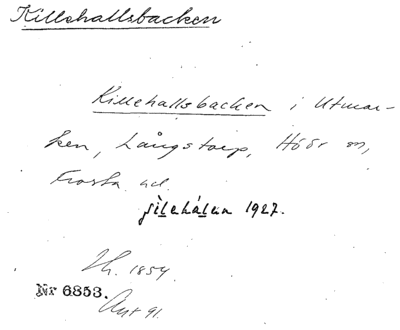 Killehallsbacken
Killehallsbacken i Utmar-
ken, Långstorp, Höör sn,
Frosta hd.
1927.
Sk. 1854.
Nr 6853.
Avt 91.